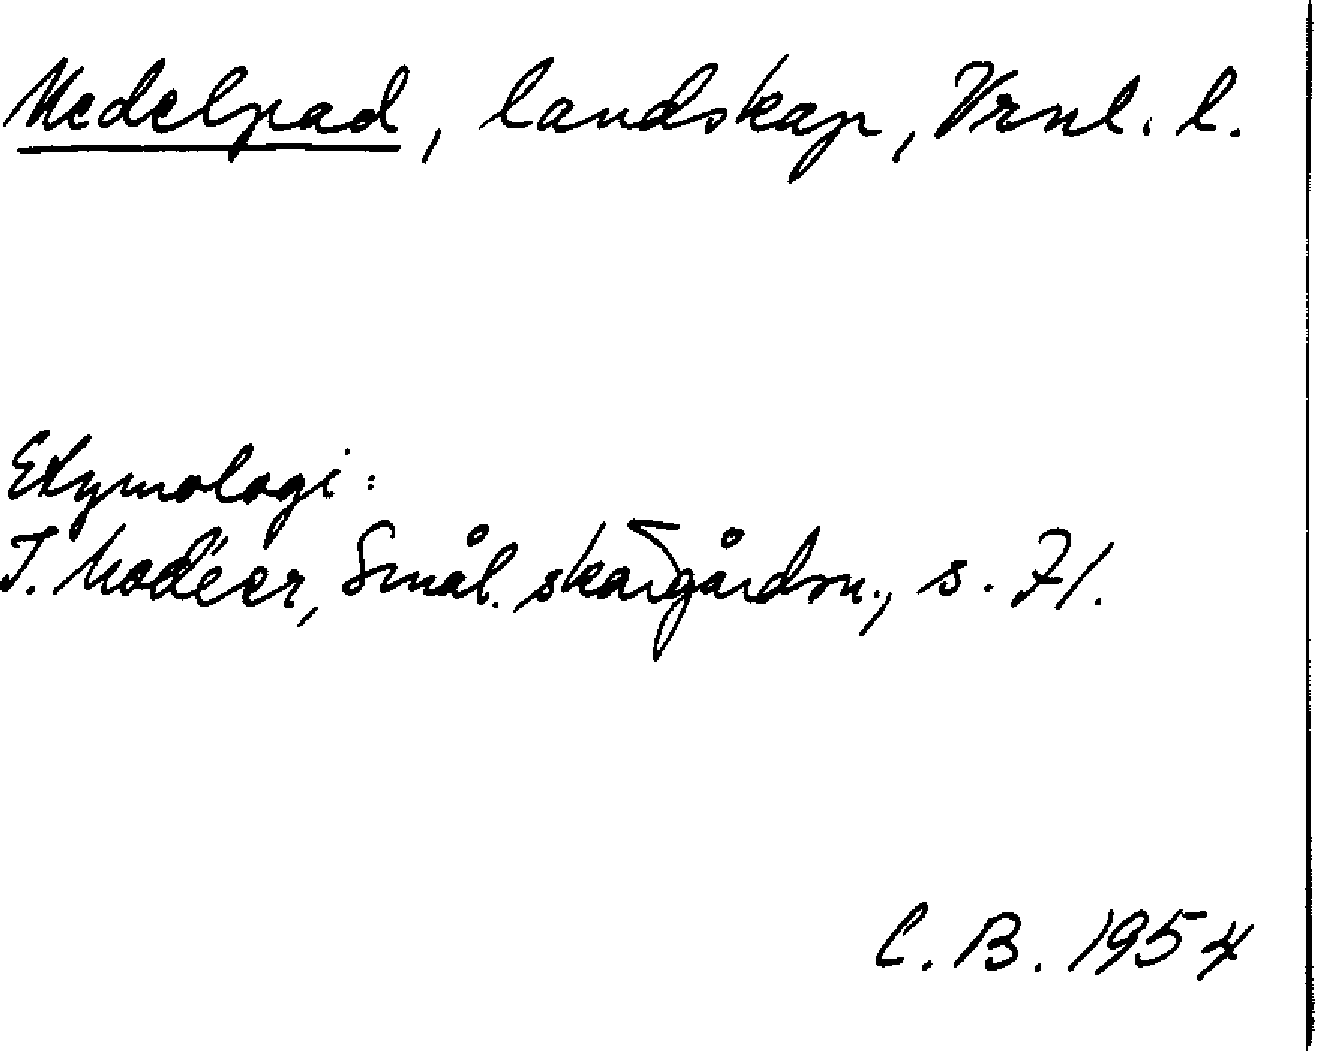 Medelpad, landskap, Vrnl. l.
Etymologi:
I. Modéer, Smål. skärgårdsn., s. 71.
C. B. 1954